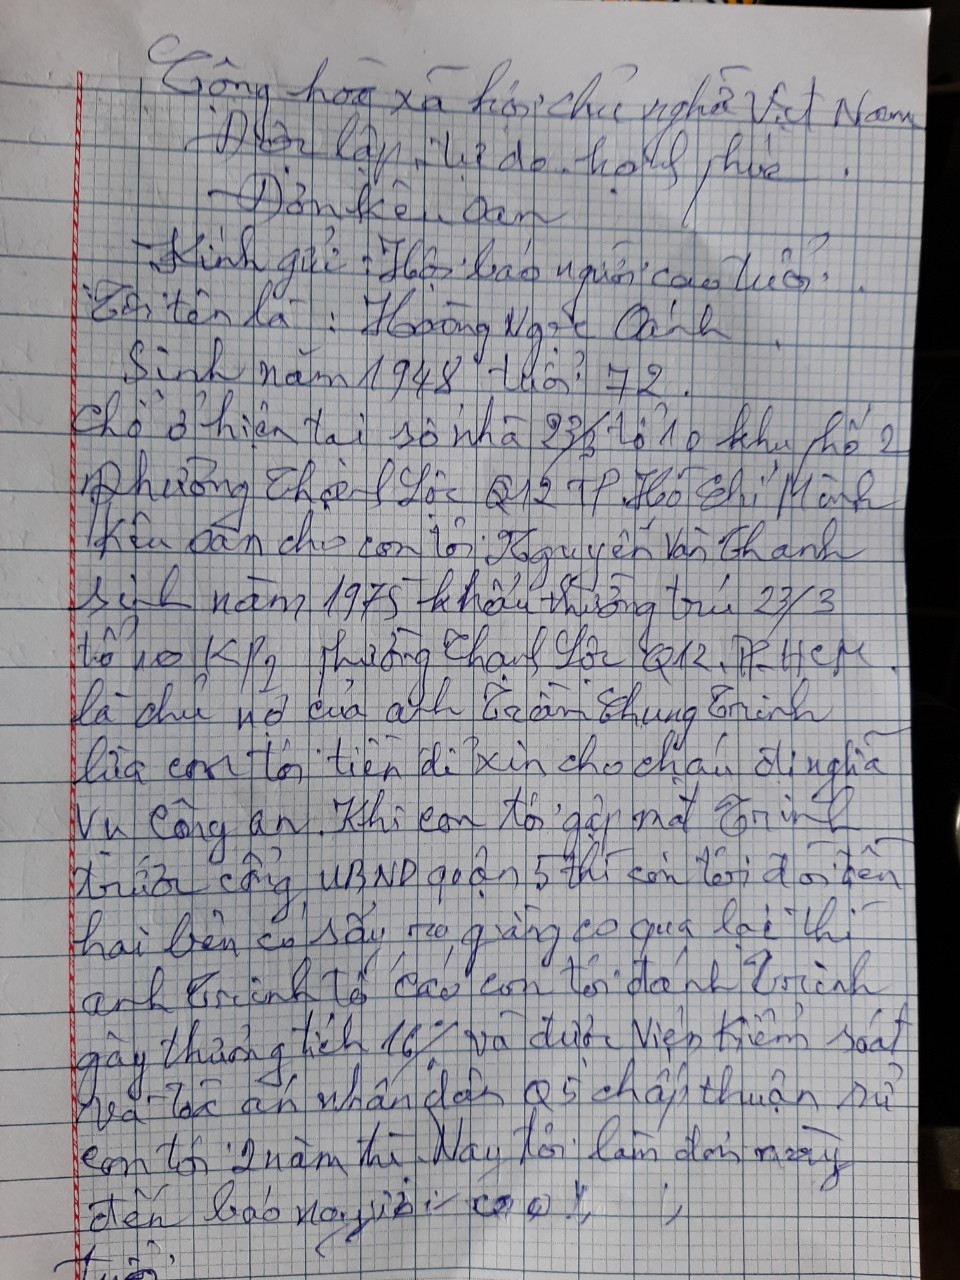 Cộng hoà xã hội chủ nghĩa Việt Nam
Độc lập, tự do. hạnh phúc.
Đơn kêu oan
Kính gửi: Hội báo người cao tuổi.
Tôi tên là: Hoàng Ngọc Oánh
Sinh năm 1948 tuổi 72.
chổ ở hiện tại số nhà 23/3 tổ 10 khu phố 2
Phường Thạnh Lộc Q12 TP. Hồ Chí Minh
kêu oan cho con tôi: Nguyễn Văn Thanh
sinh năm 1975 khẩu thường trú 23/3
tổ 10 KP2 phường Thạnh Lộc Q12. TP. HCM.
là chủ nợ của anh Trần Chung Trinh
lừa con tôi tiền để xin cho cháu đi nghĩa
vụ Công an. Khi con tôi gặp mặt Trinh
trước cổng UBND quận 5 thì con tôi đòi tiền
hai bên có sảy ra giằng co qua lại thì
anh Trinh tố cáo con tôi đánh Trinh
gây thương tích 16% và được Viện Kiểm soát
và toà án nhân dân Q5 chấp thuận sử
con tôi 2 năm tù. Nay tôi làm đơn này
đến báo người cao
tuổi